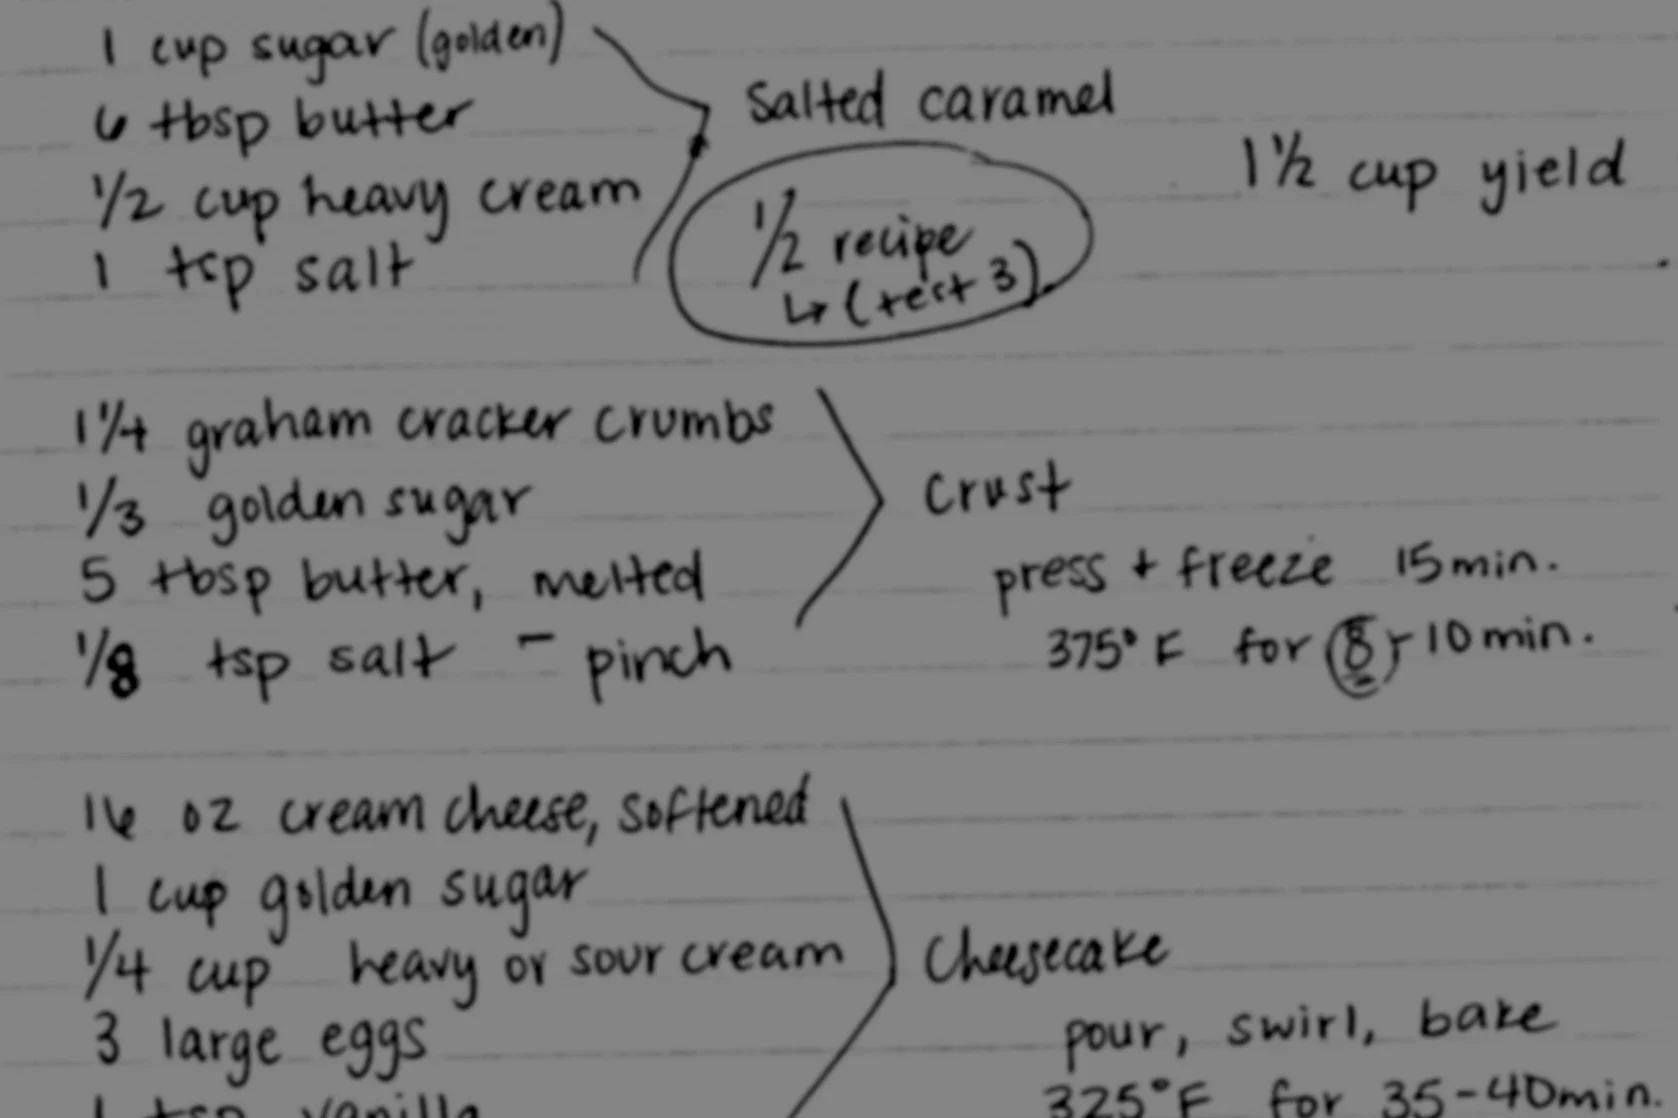 1 cup sugar (golden)
6 tbsp butter
1/2 cup heavy cream
1 tsp salt
Salted caramel
1/2 recipe
↳ (test 3)
1 1/2 cup yield
1 1/4 graham cracker crumbs
1/3 golden sugar
5 tbsp butter, melted
1/8 tsp salt - pinch
Crust
press + freeze 15 min.
375° F for 8-10 min.
16 oz cream cheese, softened
1 cup golden sugar
1/4 cup heavy or sour cream
3 large eggs
1 tsp vanilla
Cheesecake
pour, swirl, bake
325° F for 35-40 min.